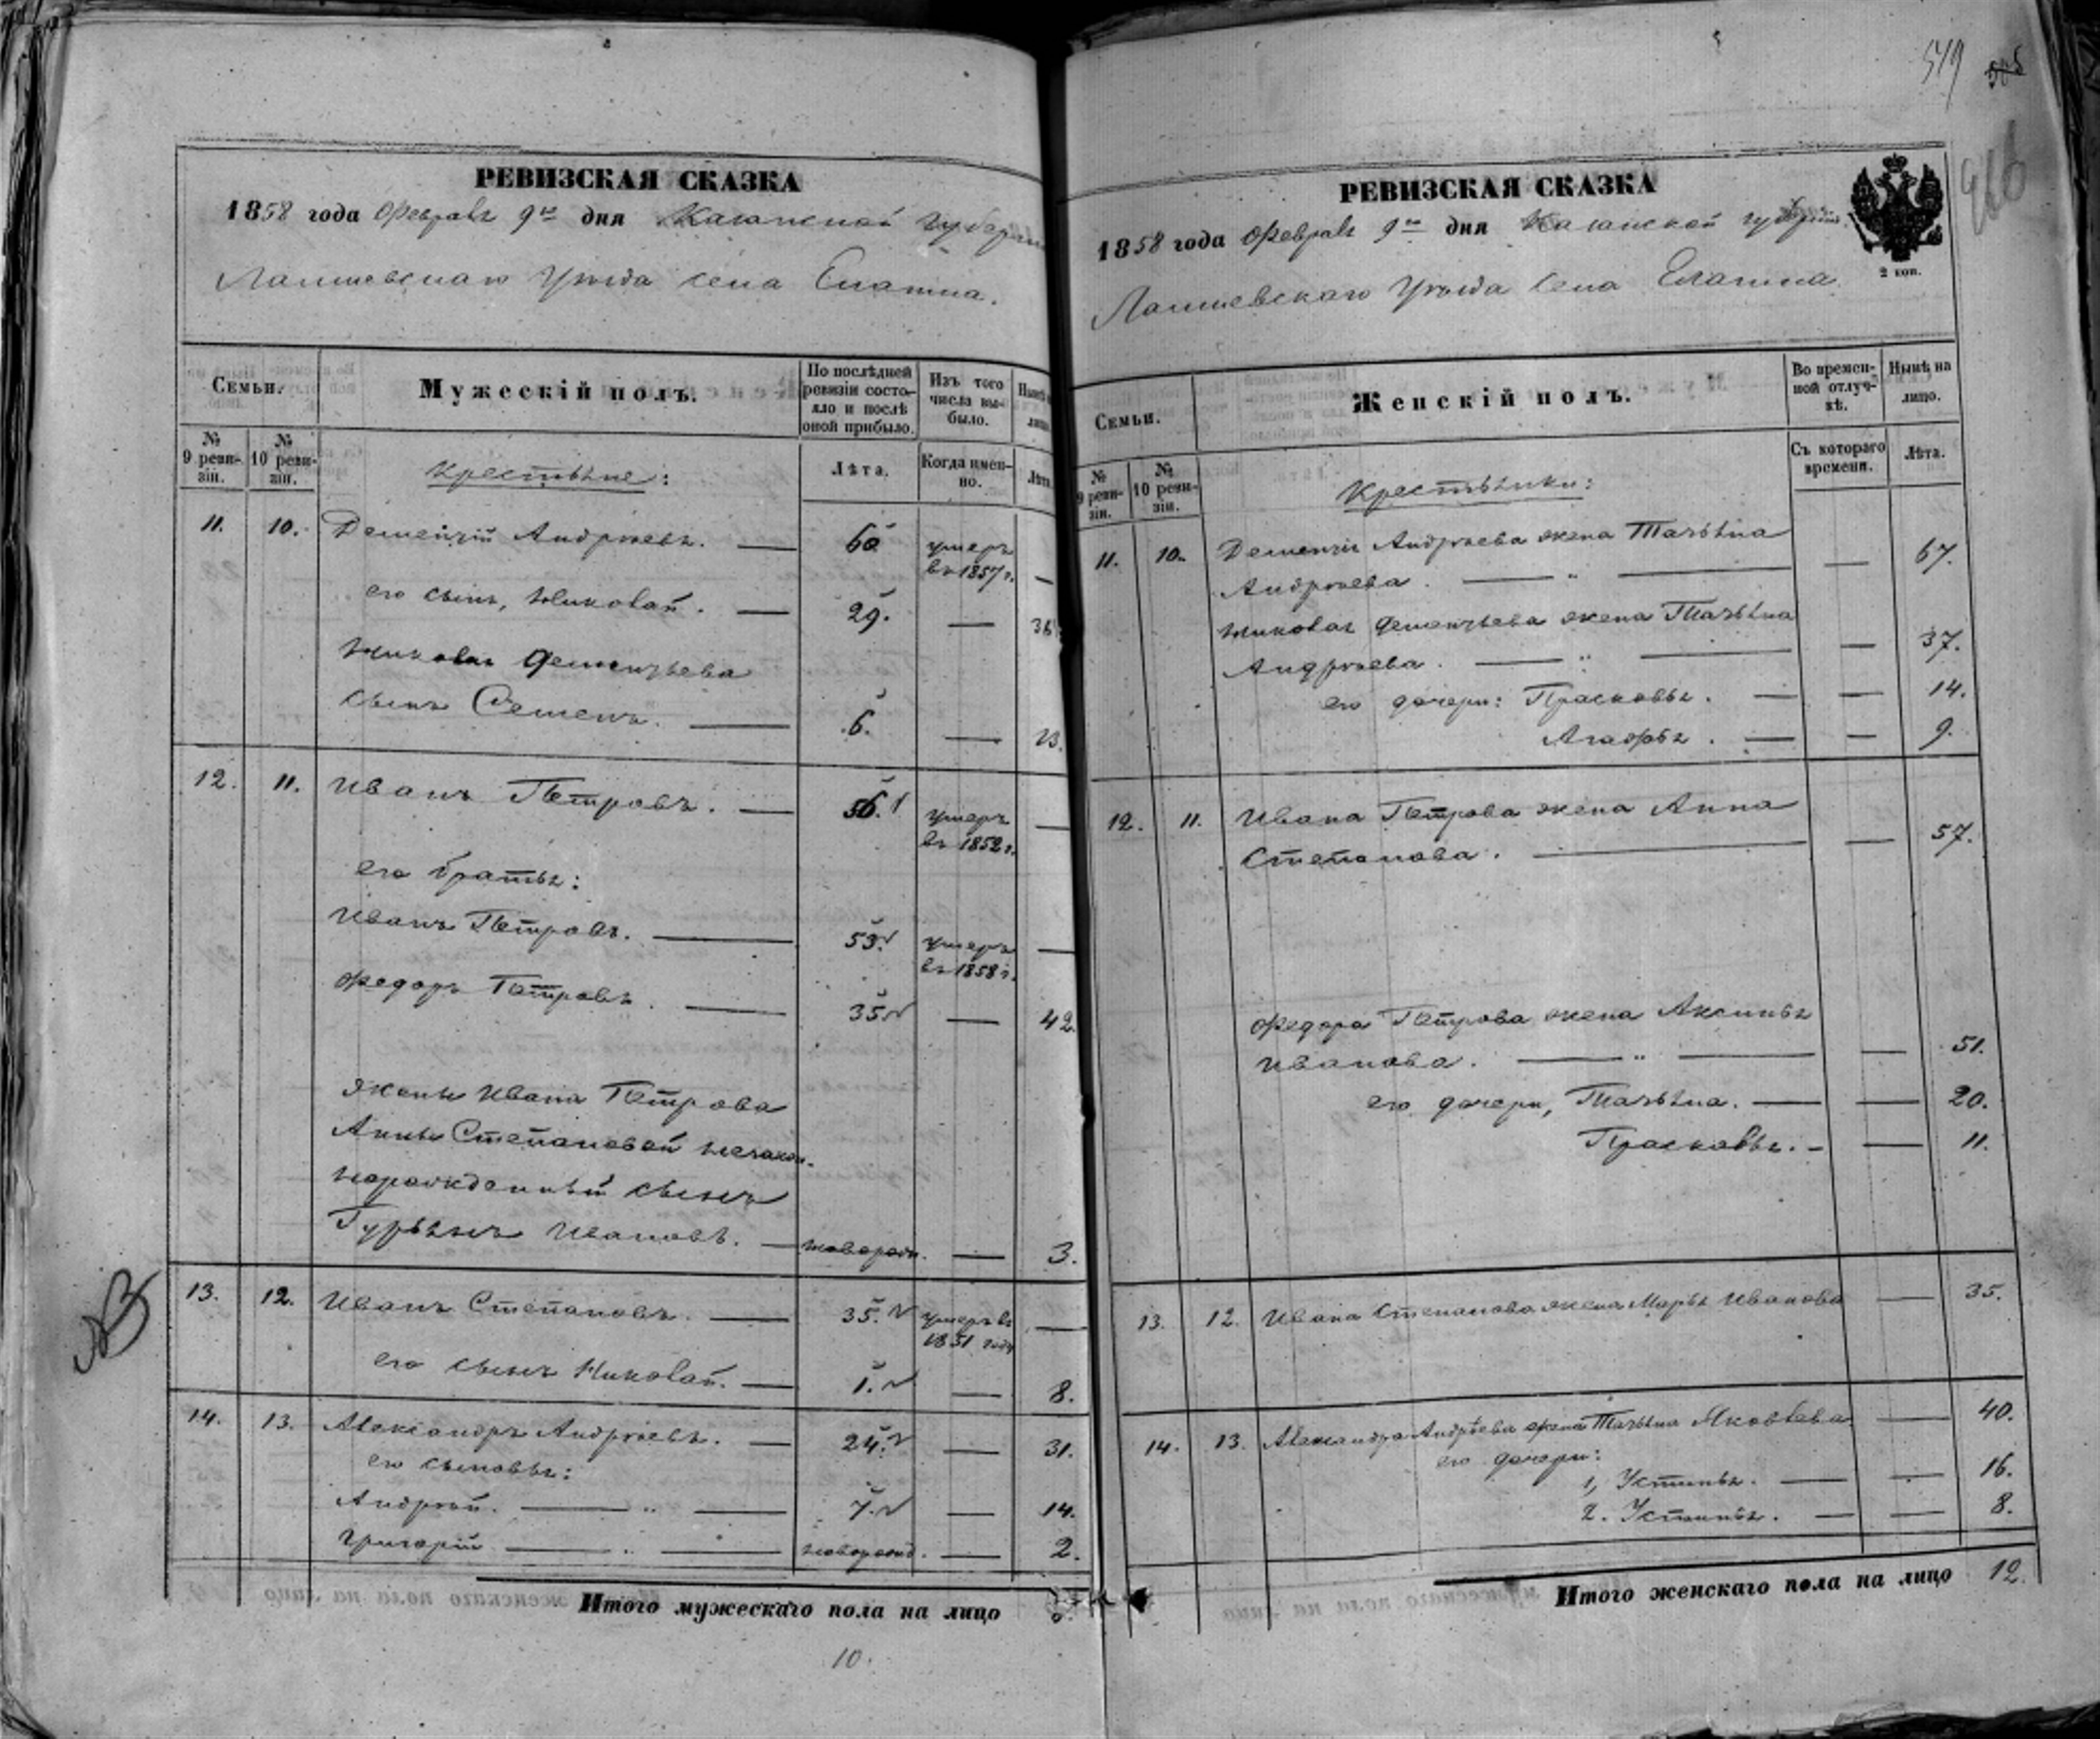 РЕВИЗСКАЯ СКАЗКА
1858 года Февраля 9го дня Казанской губерніи
Лаишевскаго Уѣзда села Елагина.
Семьи.
Мужескій полъ.
По послѣдней ревизіи состояло и послѣ оной прибыло.
Изъ того числа выбыло.
№ 9 ревизіи.
№ 10 ревизіи.
Крестьяне:
Лѣта.
Когда именно.
Лѣта.
11. 10. Дементій Андрѣевъ. — 60 умеръ въ 1857 г. —
его сынъ, Николай. — 29. — 36
Николая Дементьева
сынъ Семенъ. — 6. — 13.
12. 11. Иванъ Петровъ. — 50. умеръ въ 1852 г. —
его братья:
Иванъ Петровъ. — 53. умеръ въ 1858 г. —
Федоръ Петровъ. — 35 — 42.
жены Ивана Петрова
Анны Степановой незакон-
норожденный сынъ
Гурьянъ Ивановъ. — новорожд. — 3.
13. 12. Иванъ Степановъ. — 35. умеръ въ 1851 году —
его сынъ Николай. — 1. — 8.
14. 13. Александръ Андрѣевъ. — 24. — 31.
его сыновья:
Андрей. — „ — 7. — 14.
Григорій — „ — новорожд. — 2.
Итого мужескаго пола на лицо
10.
549
РЕВИЗСКАЯ СКАЗКА
1858 года Февраля 9го дня Казанской губерніи
2 коп.
Лаишевскаго Уѣзда села Елагина
Семьи.
Женскій полъ.
Во временной отлучкѣ.
Нынѣ на лицо.
№ 9 ревизіи.
№ 10 ревизіи.
Крестьянки:
Съ котораго времени.
Лѣта.
11. 10. Дементія Андрѣева жена Татьяна
Андрѣева. — „ — — 67.
Николая Дементьева жена Татьяна
Андрѣева. — „ — — 37.
его дочери: Прасковья. — — 14.
Агафья. — — 9.
12. 11. Ивана Петрова жена Анна
Степанова. — — 57.
Федора Петрова жена Аксинья
Иванова. — „ — — 51.
его дочери, Татьяна. — — 20.
Прасковья. — — 11.
13. 12. Ивана Степанова жена Марья Иванова — 35.
14. 13. Александра Андрѣева жена Татьяна Яковлева — 40.
его дочери:
1, Устинья. — — 16.
2. Устинья. — — 8.
Итого женскаго пола на лицо 12.